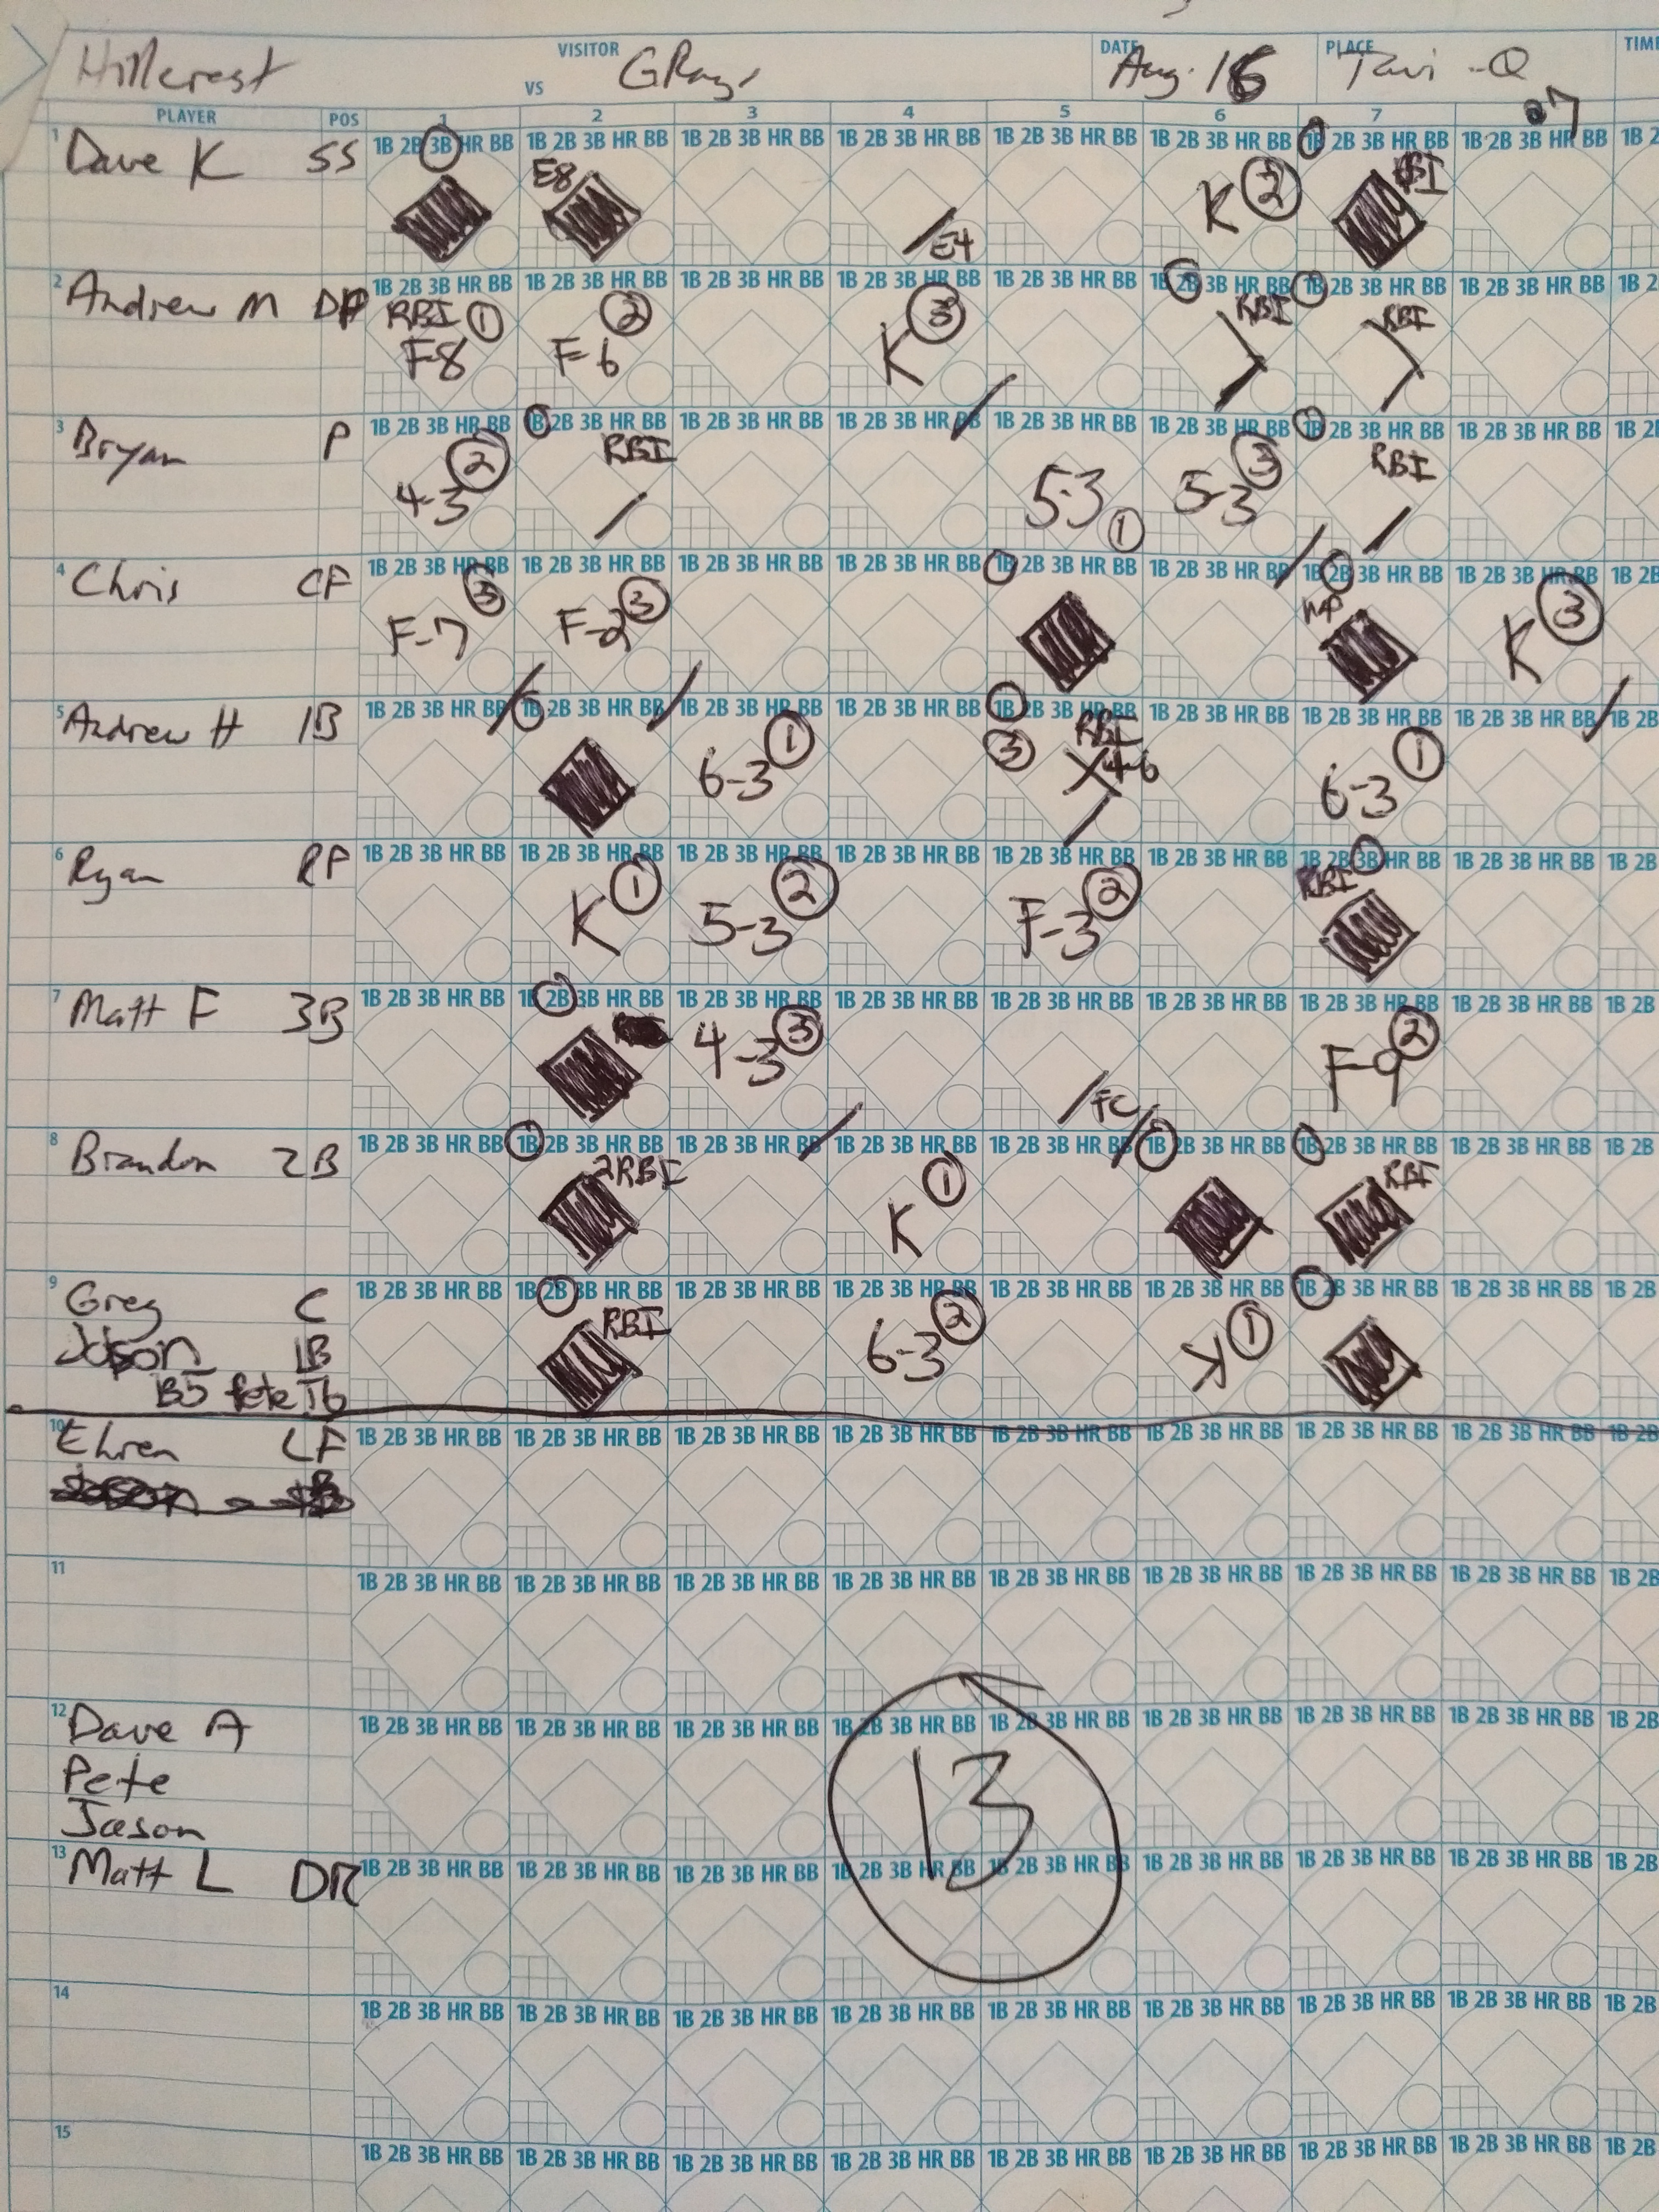 Hillcrest VISITOR VS GRays DATE Aug. 16 PLACE Tavi -Q TIM
PLAYER POS 1 2 3 4 5 6 7 7
1 Dave K SS 1B 2B 3B HR BB 1B 2B 3B HR BB 1B 2B 3B HR BB 1B 2B 3B HR BB 1B 2B 3B HR BB 1B 2B 3B HR BB 1B 2B 3B HR BB 1B 2B 3B HR BB 1B 2
E8 E4 K 2 RBI
2 Andrew M DP 1B 2B 3B HR BB 1B 2B 3B HR BB 1B 2B 3B HR BB 1B 2B 3B HR BB 1B 2B 3B HR BB 1B 2B 3B HR BB 1B 2B 3B HR BB 1B 2B 3B HR BB 1B 2
RBI 1 2 3 RBI RBI
F-8 F-6 K
3 Bryan P 1B 2B 3B HR BB 1B 2B 3B HR BB 1B 2B 3B HR BB 1B 2B 3B HR BB 1B 2B 3B HR BB 1B 2B 3B HR BB 1B 2B 3B HR BB 1B 2B 3B HR BB 1B 2
4-3 2 RBI 5-3 1 5-3 3 RBI
4 Chris CF 1B 2B 3B HR BB 1B 2B 3B HR BB 1B 2B 3B HR BB 1B 2B 3B HR BB 1B 2B 3B HR BB 1B 2B 3B HR BB 1B 2B 3B HR BB 1B 2B 3B HR BB 1B 2B
F-7 3 F-2 3 WP K 3
5 Andrew H 1B 1B 2B 3B HR BB 1B 2B 3B HR BB 1B 2B 3B HR BB 1B 2B 3B HR BB 1B 2B 3B HR BB 1B 2B 3B HR BB 1B 2B 3B HR BB 1B 2B 3B HR BB 1B 2B
6-3 1 3 RBI 4-6 6-3 1
6 Ryan RF 1B 2B 3B HR BB 1B 2B 3B HR BB 1B 2B 3B HR BB 1B 2B 3B HR BB 1B 2B 3B HR BB 1B 2B 3B HR BB 1B 2B 3B HR BB 1B 2B 3B HR BB 1B 2B
K 1 5-3 2 F-3 2 RBI
7 Matt F 3B 1B 2B 3B HR BB 1B 2B 3B HR BB 1B 2B 3B HR BB 1B 2B 3B HR BB 1B 2B 3B HR BB 1B 2B 3B HR BB 1B 2B 3B HR BB 1B 2B 3B HR BB 1B 2B
4-3 3 FC F-9 2
8 Brandon 2B 1B 2B 3B HR BB 1B 2B 3B HR BB 1B 2B 3B HR BB 1B 2B 3B HR BB 1B 2B 3B HR BB 1B 2B 3B HR BB 1B 2B 3B HR BB 1B 2B 3B HR BB 1B 2B
2RBI K 1 RBI
9 Greg C 1B 2B 3B HR BB 1B 2B 3B HR BB 1B 2B 3B HR BB 1B 2B 3B HR BB 1B 2B 3B HR BB 1B 2B 3B HR BB 1B 2B 3B HR BB 1B 2B 3B HR BB 1B 2B
Jason 1B RBI 6-3 2 K 1
B5 Pete T6
10 Ehren LF 1B 2B 3B HR BB 1B 2B 3B HR BB 1B 2B 3B HR BB 1B 2B 3B HR BB 1B 2B 3B HR BB 1B 2B 3B HR BB 1B 2B 3B HR BB 1B 2B 3B HR BB 1B 2B
11 1B 2B 3B HR BB 1B 2B 3B HR BB 1B 2B 3B HR BB 1B 2B 3B HR BB 1B 2B 3B HR BB 1B 2B 3B HR BB 1B 2B 3B HR BB 1B 2B 3B HR BB 1B 2B
12 Dave A 1B 2B 3B HR BB 1B 2B 3B HR BB 1B 2B 3B HR BB 1B 2B 3B HR BB 1B 2B 3B HR BB 1B 2B 3B HR BB 1B 2B 3B HR BB 1B 2B 3B HR BB 1B 2B
Pete 13
Jason
13 Matt L DR 1B 2B 3B HR BB 1B 2B 3B HR BB 1B 2B 3B HR BB 1B 2B 3B HR BB 1B 2B 3B HR BB 1B 2B 3B HR BB 1B 2B 3B HR BB 1B 2B 3B HR BB 1B 2B
14 1B 2B 3B HR BB 1B 2B 3B HR BB 1B 2B 3B HR BB 1B 2B 3B HR BB 1B 2B 3B HR BB 1B 2B 3B HR BB 1B 2B 3B HR BB 1B 2B 3B HR BB 1B 2B
15 1B 2B 3B HR BB 1B 2B 3B HR BB 1B 2B 3B HR BB 1B 2B 3B HR BB 1B 2B 3B HR BB 1B 2B 3B HR BB 1B 2B 3B HR BB 1B 2B 3B HR BB 1B 2B